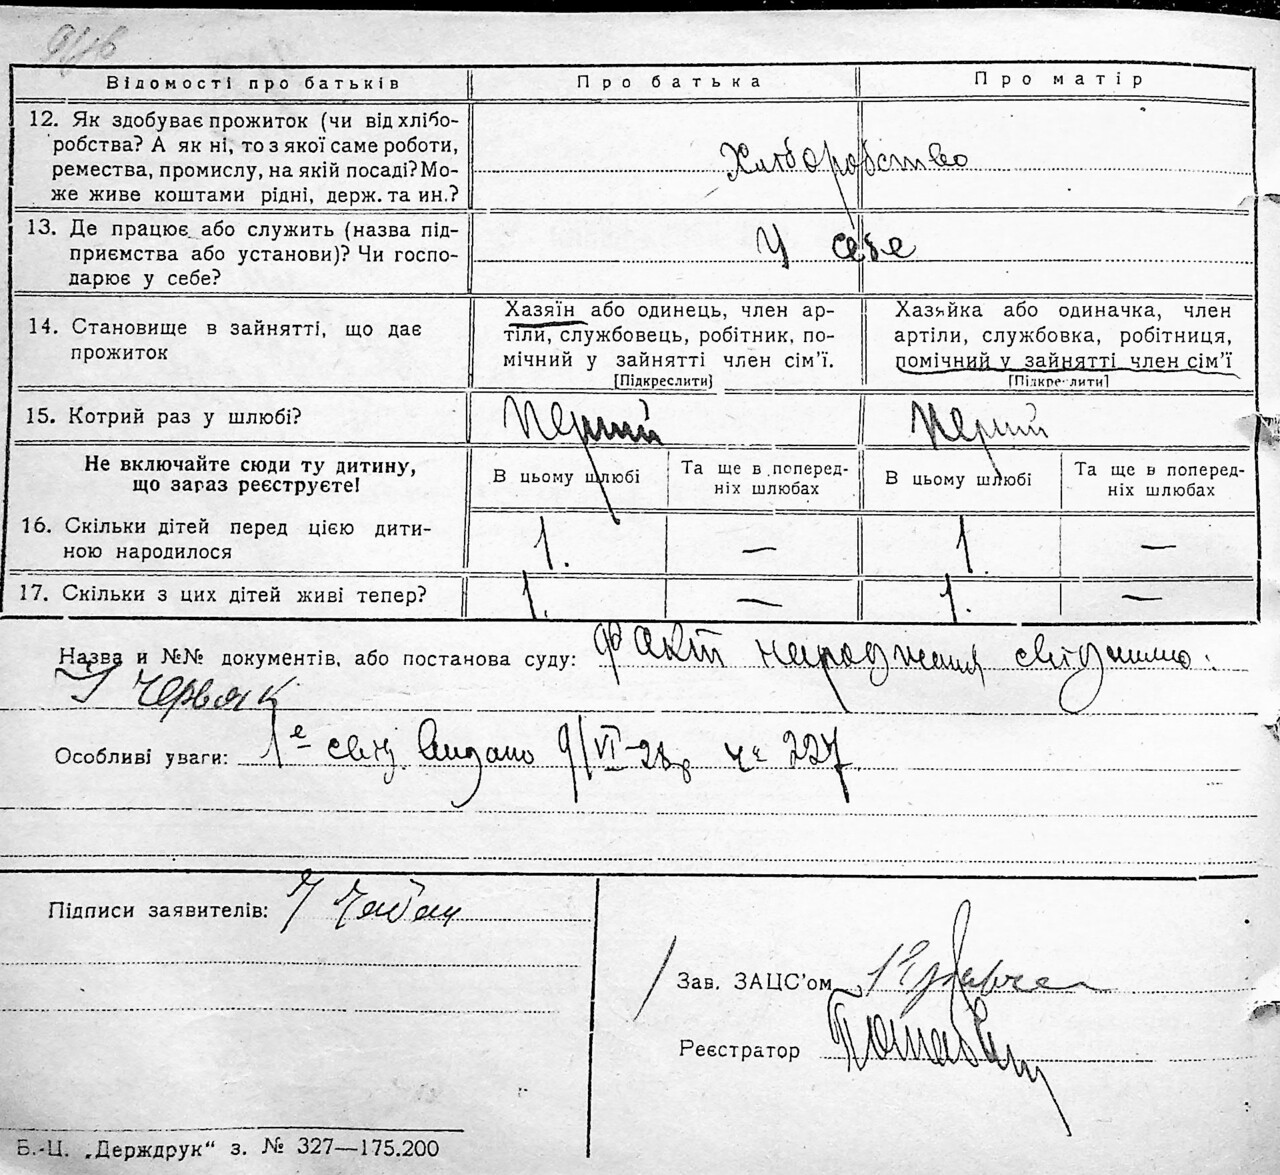 Відомості про батьків
Про батька
Про матір
12. Як здобуває прожиток (чи від хлібо-
робства? А як ні, то з якої саме роботи,
ремества, промислу, на якій посаді? Мо-
же живе коштами рідні, держ. та ин.?
Хліборобство
13. Де працює або служить (назва під-
приємства або установи)? Чи госпо-
дарює у себе?
У себе
14. Становище в зайнятті, що дає
прожиток
Хазяїн або одинець, член ар-
тіли, службовець, робітник, по-
мічний у зайнятті член сім'ї.
[Підкреслити]
Хазяйка або одиначка, член
артіли, службовка, робітниця,
помічний у зайнятті член сім'ї
[Підкреслити]
15. Котрий раз у шлюбі?
Перший
Перший
Не включайте сюди ту дитину,
що зараз реєструєте!
В цьому шлюбі
Та ще в поперед-
ніх шлюбах
В цьому шлюбі
Та ще в поперед-
ніх шлюбах
16. Скільки дітей перед цією дити-
ною народилося
1. — 1. —
17. Скільки з цих дітей живі тепер?
1. — 1. —
Назва и №№ документів, або постанова суду: факт народження свідчимо:
Червяк
Особливі уваги: 1е свід. видано 9/VI-28р чс 227.
Підписи заявителів:
Зав. ЗАЦС'ом
Реєстратор
Б.-Ц. „Держдрук“ з. № 327—175.200